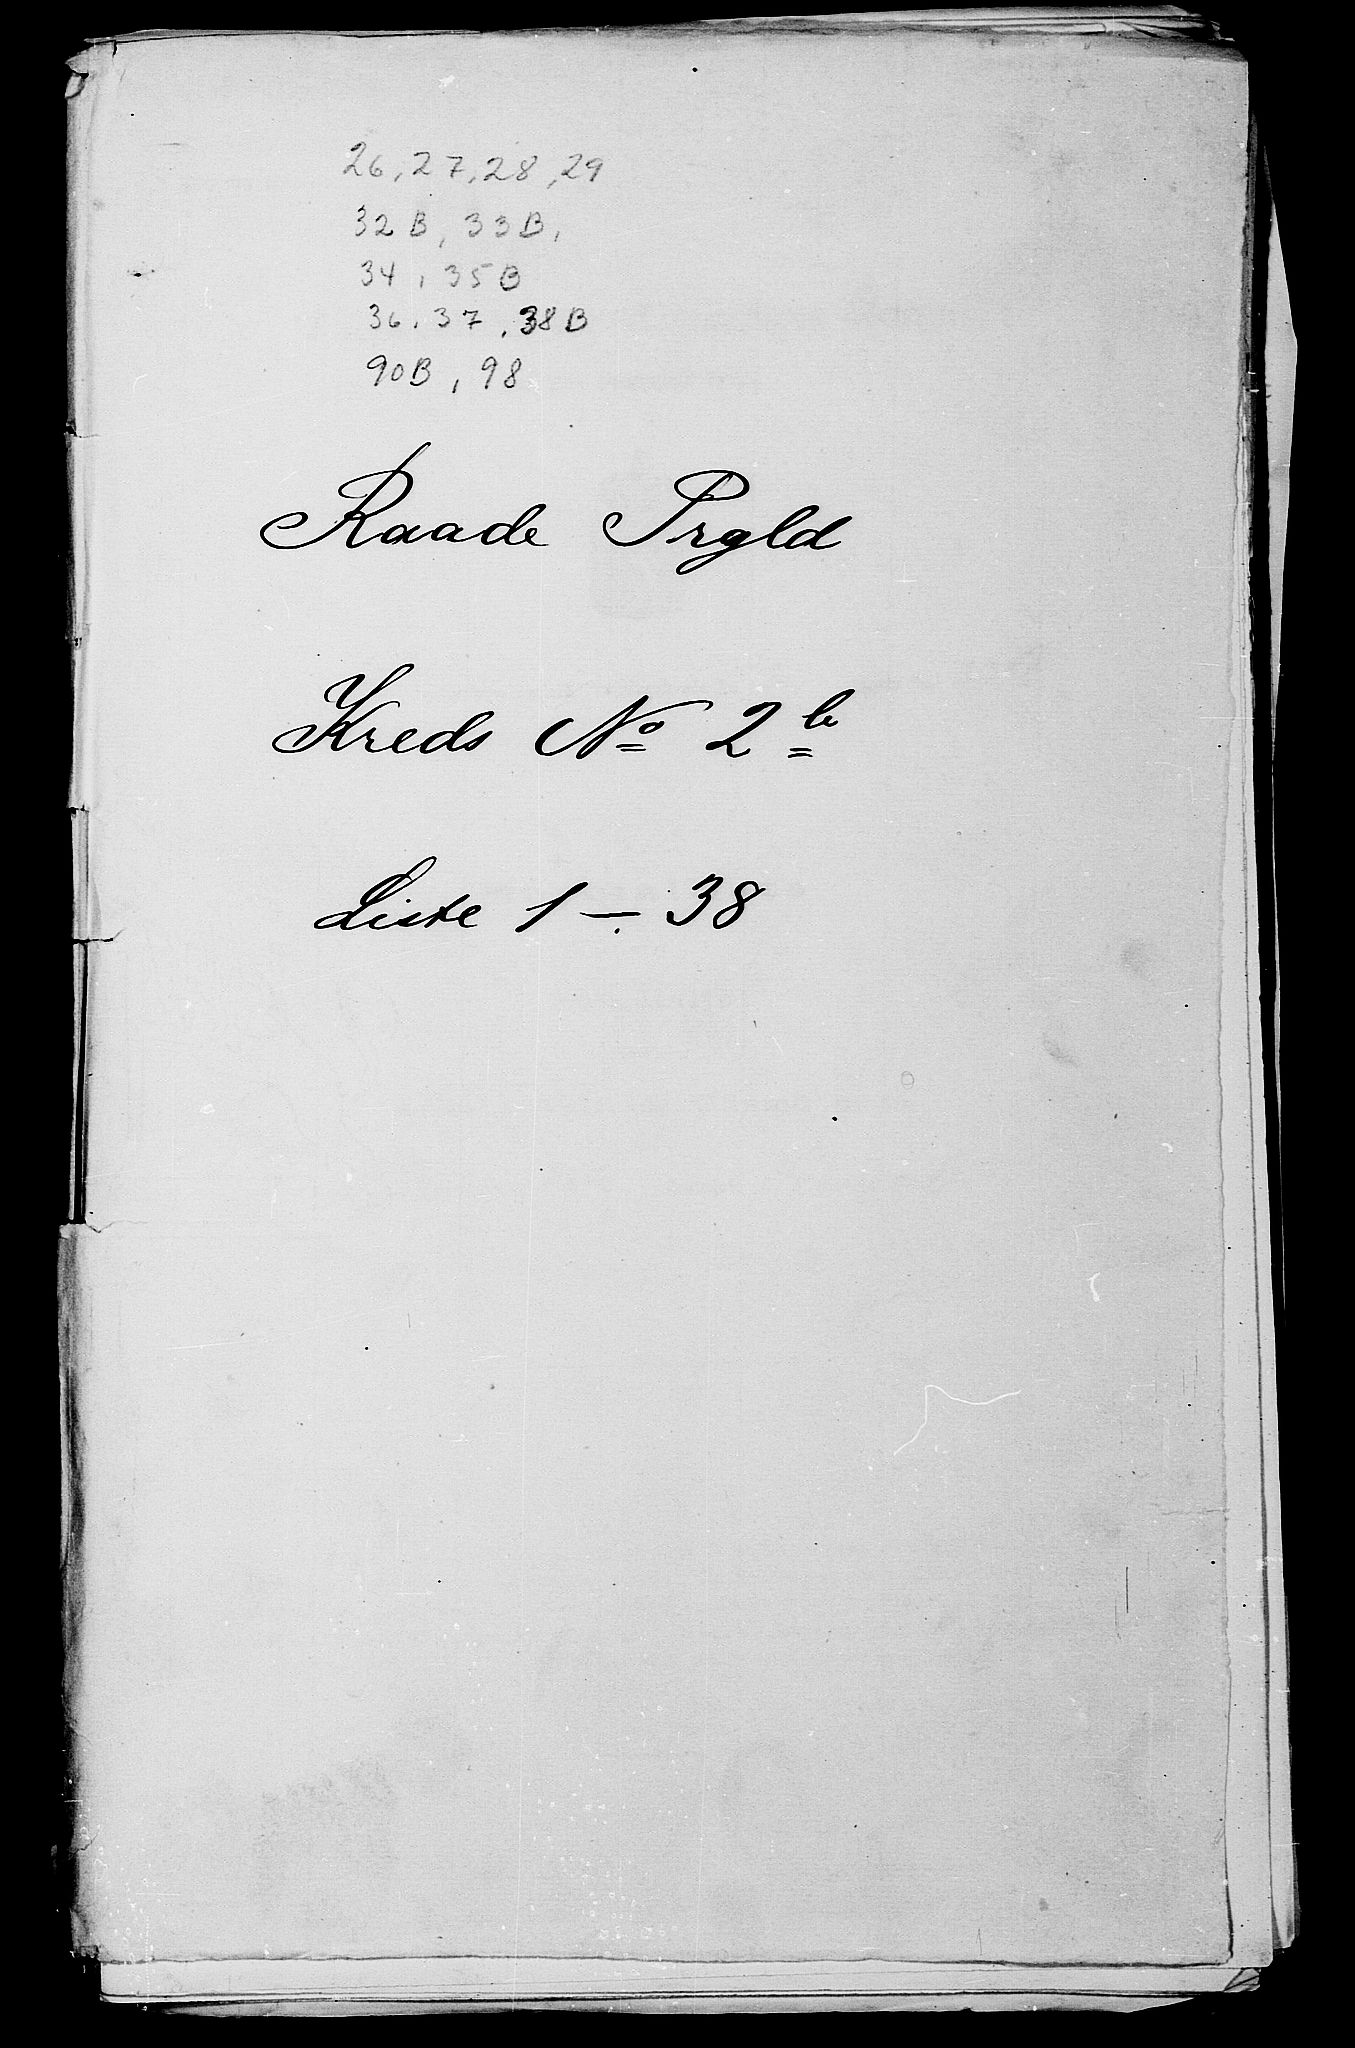 26, 27, 28, 29
32 B, 33 B,
34, 35 B
36, 37, 38 B
90B, 98
Raade Prgld
Kreds No 2 b
Liste 1 - 38